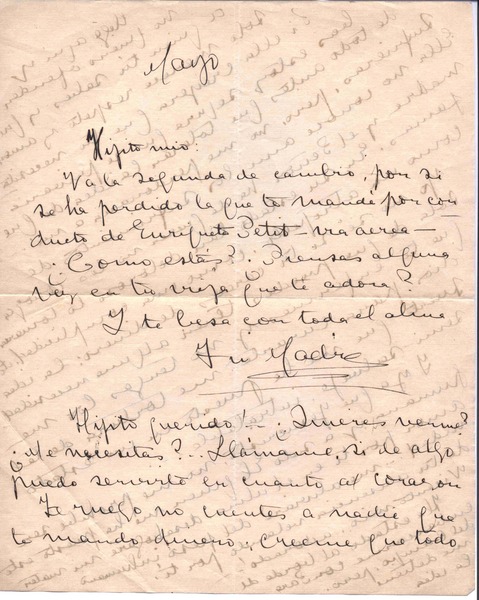 Mayo
Hijito mio:
Va la segunda de cambio, por si
se ha perdido la que te mandé por con-
ducto de Enriqueta Petit - via aerea -
¿Como estás? ¿Piensas alguna
vez en tu vieja que te adora?
Y te besa con toda el alma
Tu Madre
Hijito querido!... ¿Quieres verme?
¿Me necesitas?... Llámame, si de algo
puedo servirte en cuanto al corazon
Te ruego no cuentes a nadie que
te mando dinero; creeme que todo